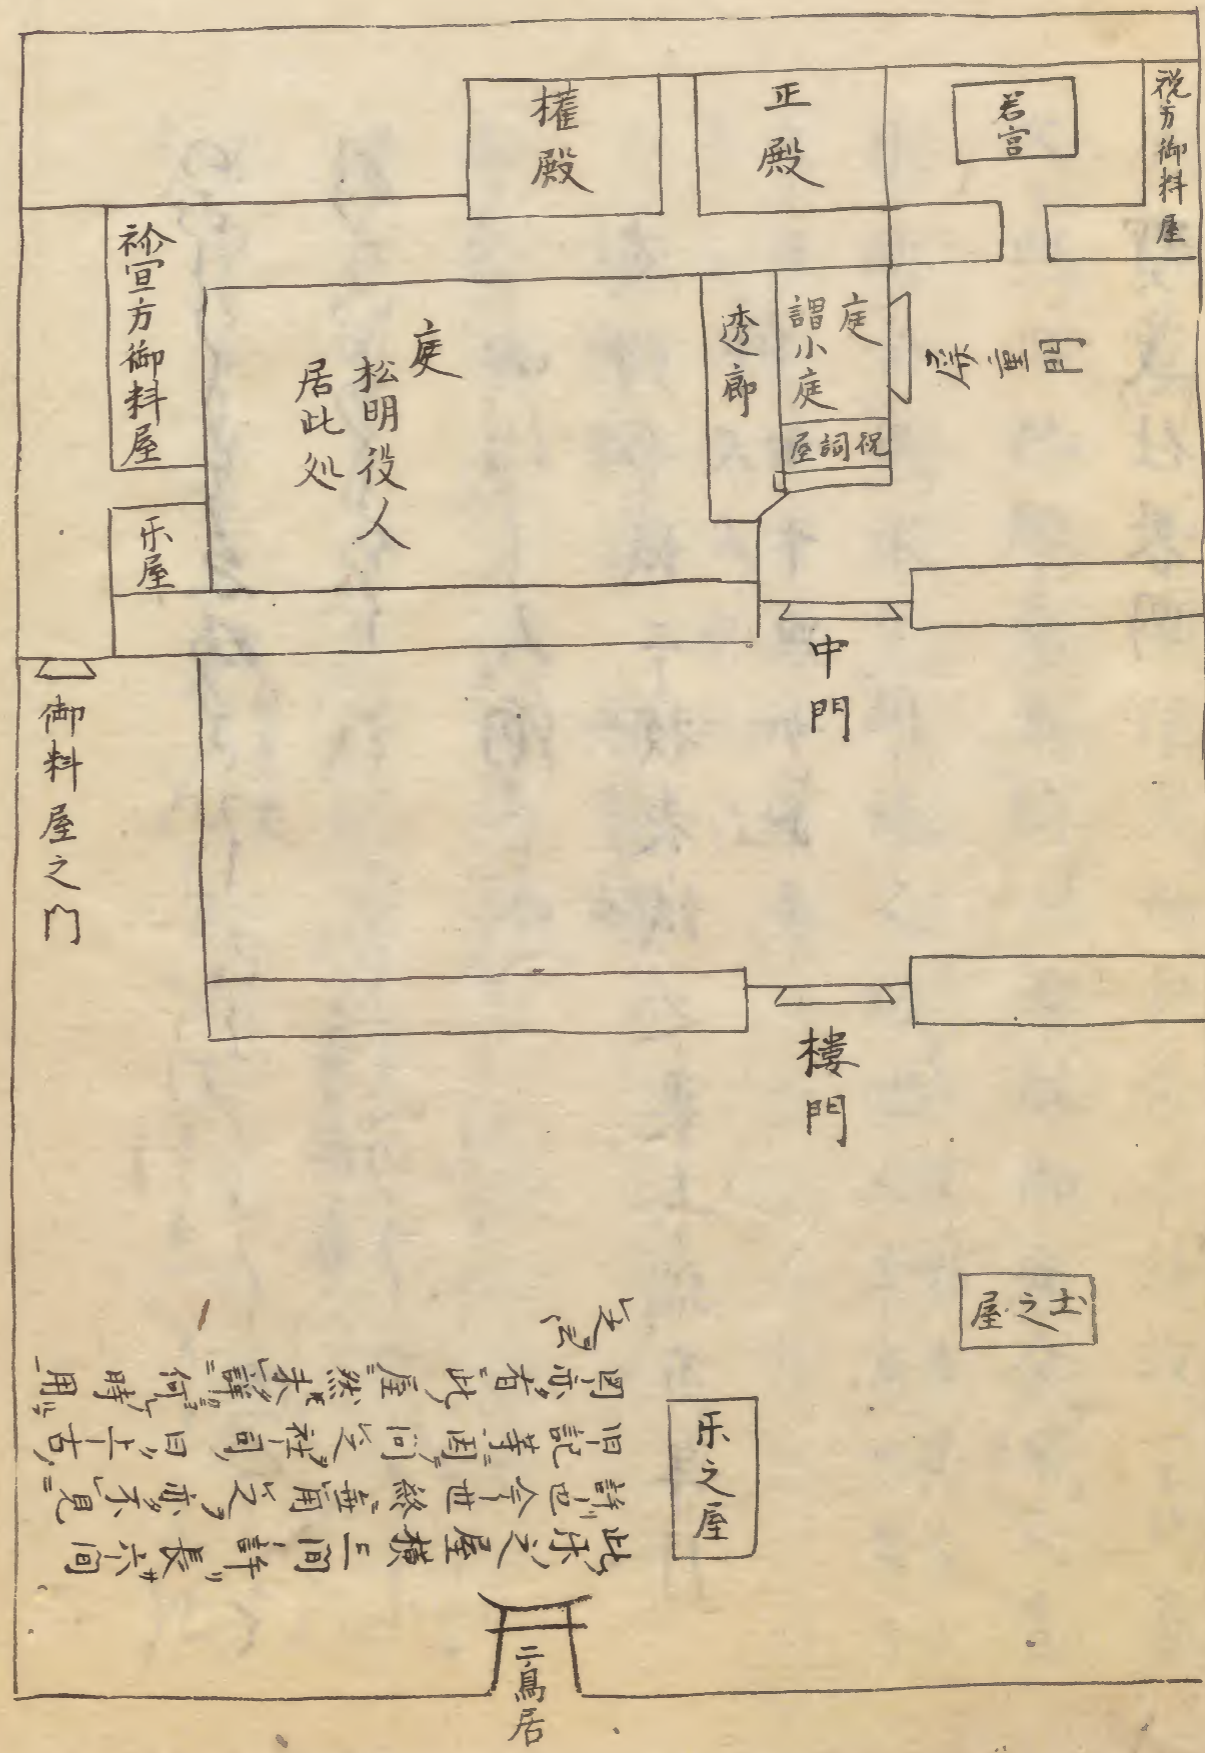 權殿
正殿
若宮
祝方御料屋
祢宜方御料屋
庭
松明役人
居此処
透廊
庭
謂小庭
祝詞屋
屏重門
乐屋
中門
御料屋之门
樓門
土之屋
乐之屋
此乐之屋横二间許長六间
許也今世終無用又亦不見
旧記等因问之社司曰上古
圖亦有此屋然未詳何時用
二鳥居